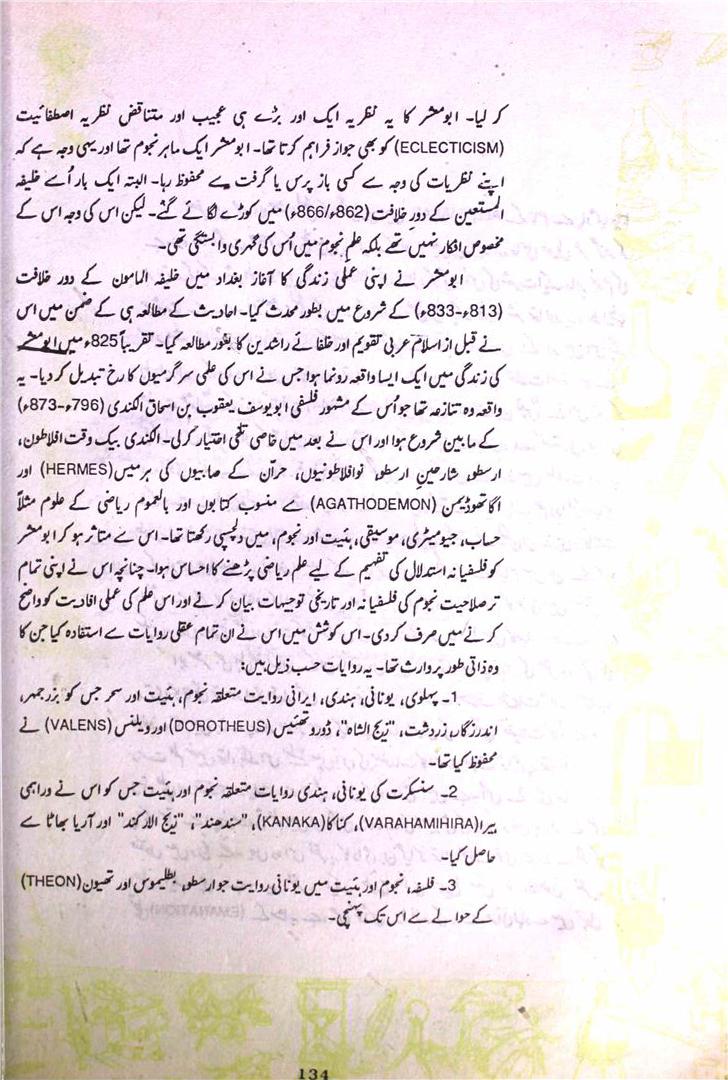 کر لیا۔ ابومشر کا یہ نظریہ ایک اور بڑے ہی عجیب اور متناقض نظریہ اصطفائیت
(ECLECTICISM) کو بھی جواز فراہم کرتا تھا۔ ابومشر ایک ماہر نجوم تھا اور یہی وجہ ہے کہ
اپنے نظریات کی وجہ سے کسی باز پرس یا گرفت سے محفوظ رہا۔ البتہ ایک بار اُسے خلیفہ
المستعین کے دور خلافت (862ء/866ء) میں کوڑے لگائے گئے۔ لیکن اس کی وجہ اس کے
مخصوص افکار نہیں تھے بلکہ علم نجوم میں اُس کی گہری وابستگی تھی۔
ابومشر نے اپنی عملی زندگی کا آغاز بغداد میں خلیفہ المامون کے دور خلافت
(813ء-833ء) کے شروع میں بطور محدث کیا۔ احادیث کے مطالعہ ہی کے ضمن میں اس
نے قبل از اسلام عربی تقویم اور خلفائے راشدین کا بغور مطالعہ کیا۔ تقریباً 825ء میں ابومشر
کی زندگی میں ایک ایسا واقعہ رونما ہوا جس نے اس کی علمی سرگرمیوں کا رخ تبدیل کر دیا۔ یہ
واقعہ وہ تنازعہ تھا جو اُس کے مشہور فلسفی ابو یوسف یعقوب بن اسحاق الکندی (796ء-873ء)
کے مابین شروع ہوا اور اس نے بعد میں خاصی تلخی اختیار کر لی۔ الکندی بیک وقت افلاطون،
ارسطو، شارحین ارسطو، نوافلاطونیوں، حرّان کے صابیوں کی ہرمیس (HERMES) اور
اگاتھوڈیمن (AGATHODEMON) سے منسوب کتابوں اور بالعموم ریاضی کے علوم مثلاً
حساب، جیومیٹری، موسیقی، ہئیت اور نجوم، میں دلچسپی رکھتا تھا۔ اس سے متاثر ہو کر ابومشر
کو فلسفیانہ استدلال کی تفہیم کے لیے علم ریاضی پڑھنے کا احساس ہوا۔ چنانچہ اس نے اپنی تمام
تر صلاحیت نجوم کی فلسفیانہ اور تاریخی توجیہات بیان کرنے اور اس علم کی عملی افادیت کو واضح
کرنے میں صرف کر دی۔ اس کوشش میں اس نے ان تمام عقلی روایات سے استفادہ کیا جن کا
وہ ذاتی طور پر وارث تھا۔ یہ روایات حسب ذیل ہیں:
1۔ پہلوی، یونانی، ہندی، ایرانی روایت متعلقہ نجوم، ہئیت اور سحر جس کو بزرجمہر،
اندرزگاں، زردشت، "زیج الشاہ"، ڈوروتھئیس (DOROTHEUS) اور ویلنس (VALENS) نے
محفوظ کیا تھا۔
2۔ سنسکرت کی یونانی، ہندی روایات متعلقہ نجوم اور ہئیت جس کو اس نے وراہی
ہیرا (VARAHAMIHIRA)، کناکا (KANAKA)، "سندھند"، "زیج الارکند" اور آریا بھاٹا سے
حاصل کیا۔
3۔ فلسفہ، نجوم اور ہئیت میں یونانی روایت جو ارسطو، بطلیموس اور تھیون (THEON)
کے حوالے سے اس تک پہنچی۔
134